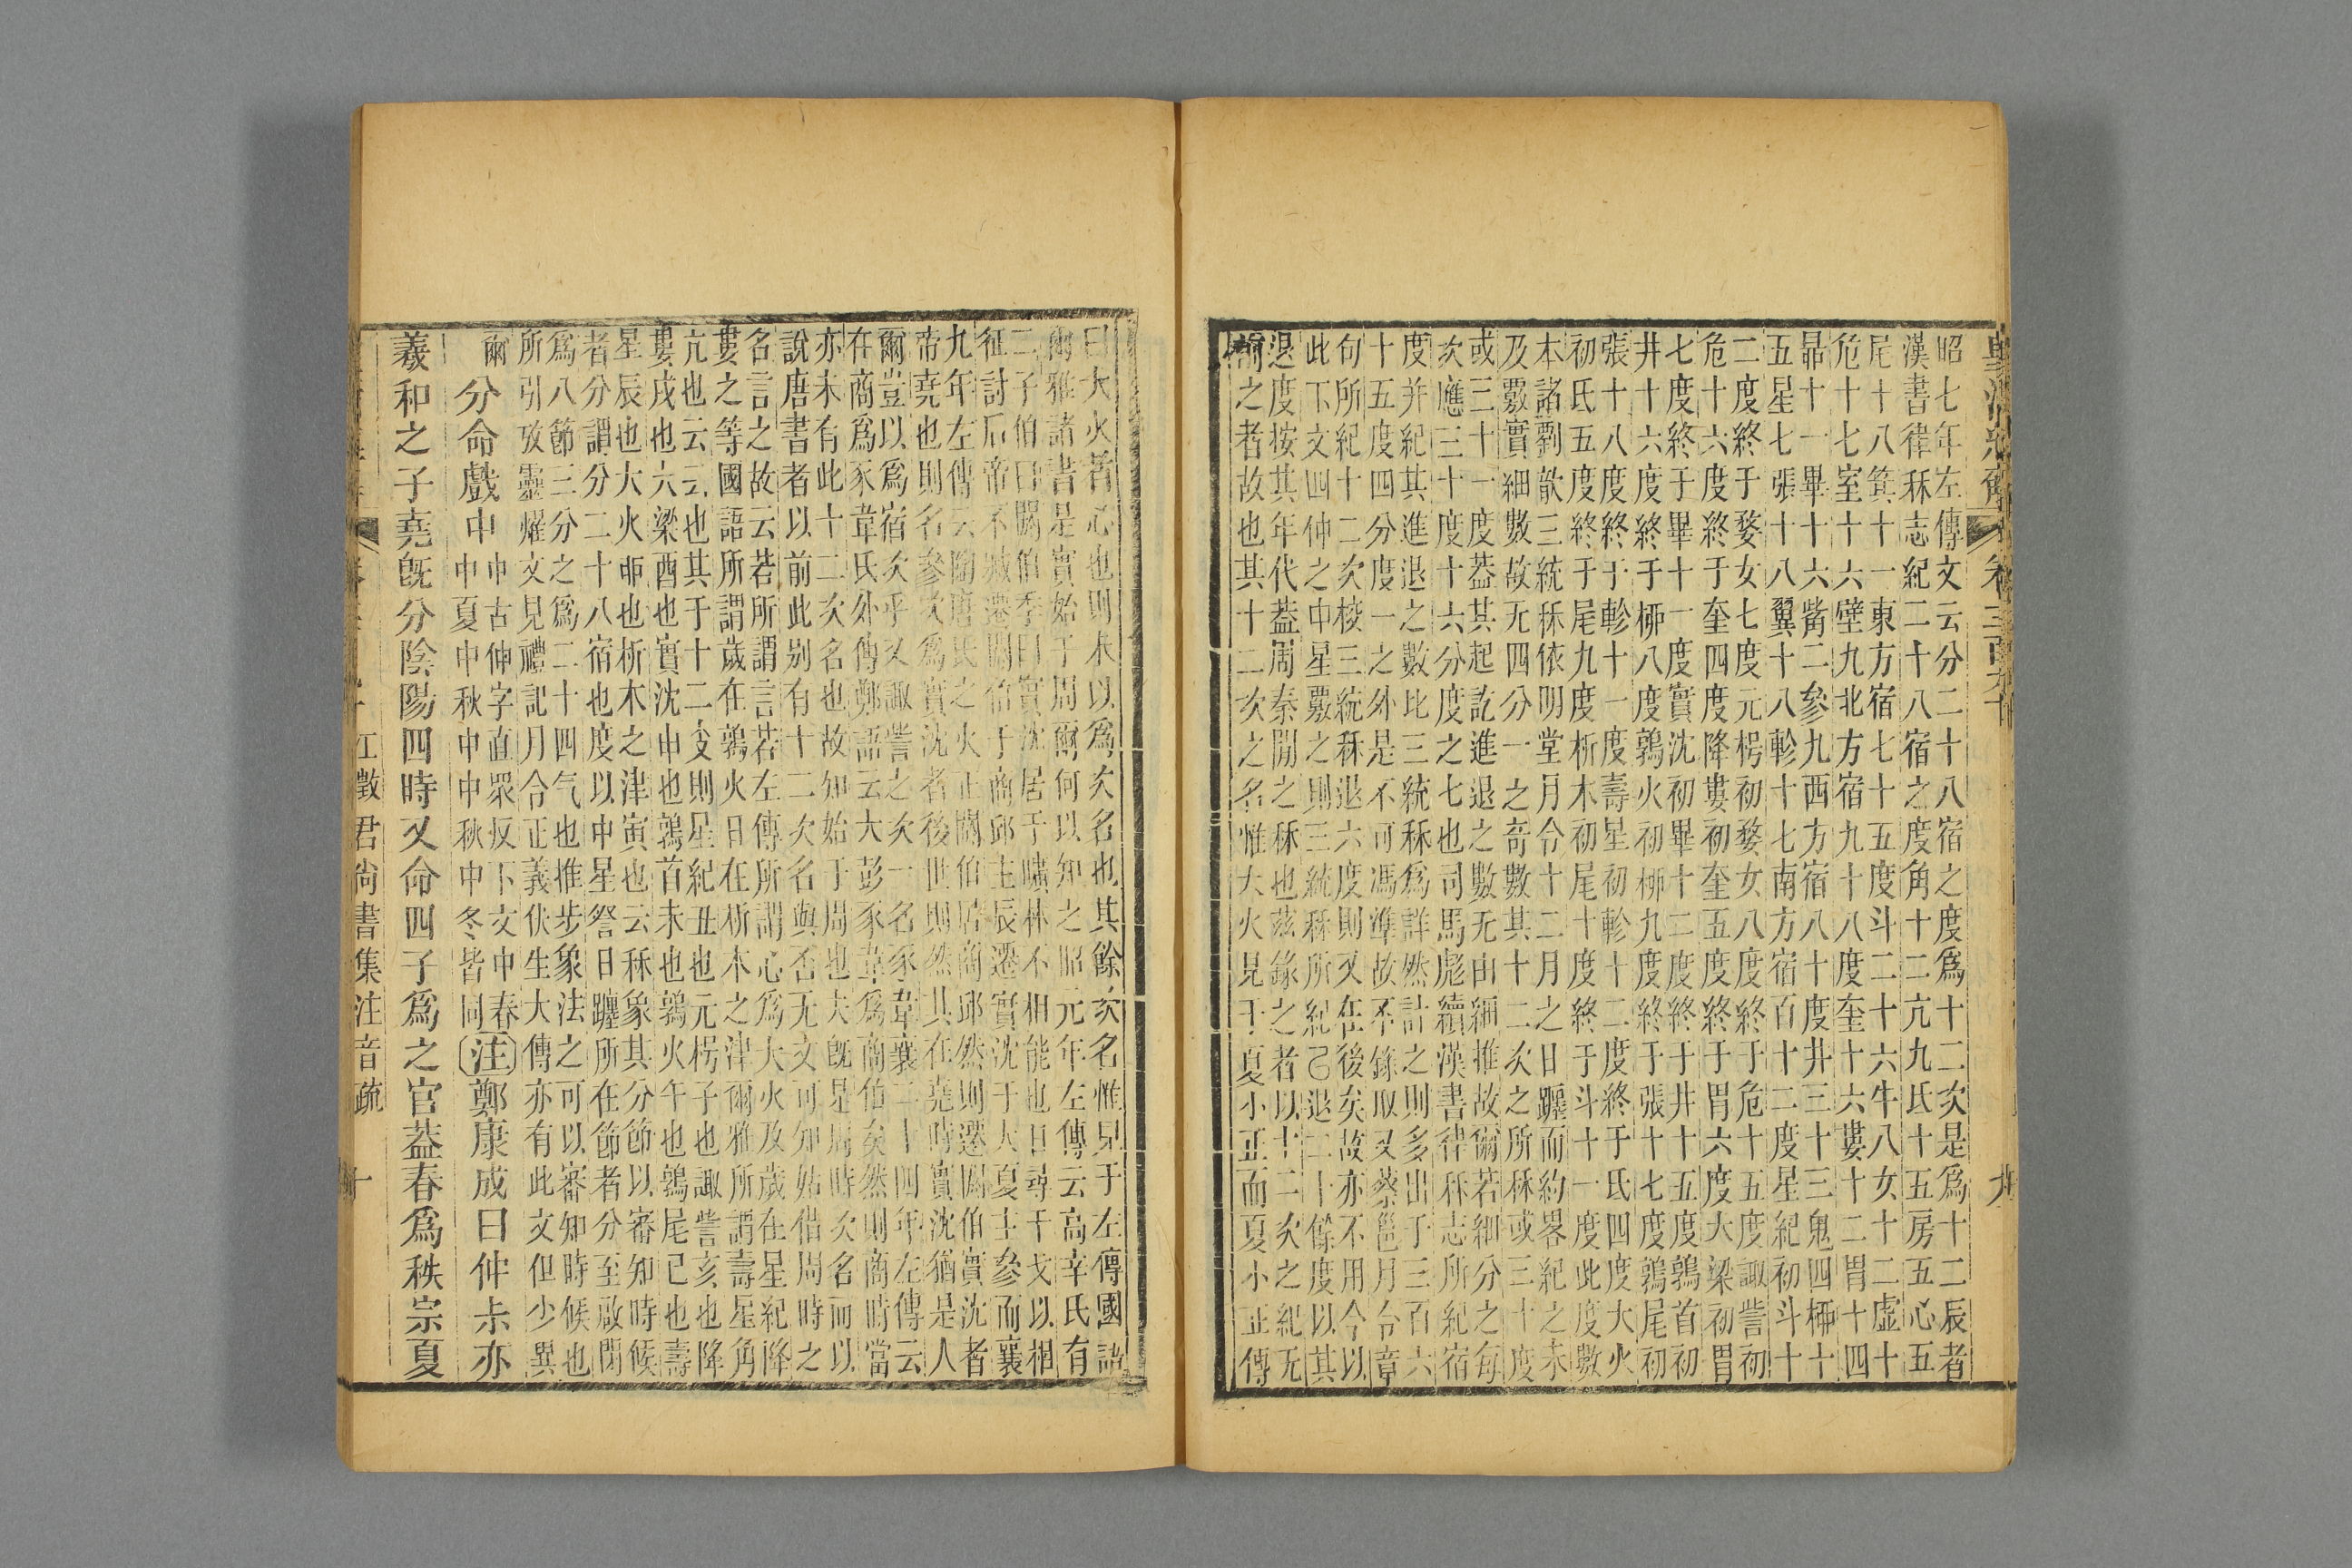 皇清經解 卷三百九十 九
昭七年左傳文云分二十八宿之度爲十二次是爲十二辰者
漢書律秝志紀二十八宿之度角十二亢九氐十五房五心五
尾十八箕十一東方宿七十五度斗二十六牛八女十二虛十
危十七室十六壁九北方宿九十八度奎十六婁十二胃十四
昴十一畢十六觜二參九西方宿八十度井三十三鬼四桺十
五星七張十八翼十八軫十七南方宿百十二度星紀初斗十
二度終于婺女七度元枵初婺女八度終于危十五度諏訾初
危十六度終于奎四度降婁初奎五度終于胃六度大梁初胃
七度終于畢十一度實沈初畢十二度終于井十五度鶉首初
井十六度終于桺八度鶉火初桺九度終于張十七度鶉尾初
張十八度終于軫十一度壽星初軫十二度終于氐四度大火
初氐五度終于尾九度析木初尾十度終于斗十一度此度數
本諸劉歆三統秝依明堂月令十二月之日躔而約畧紀之未
及覈實細數故无四分一之奇數其十二次之所秝或三十度
或三十一度葢其起訖進退之數无由細推故爾若細分之每
次應三十度十六分度之七也司馬彪續漢書律秝志所紀宿
度并紀其進退之數比三統秝爲詳然計之則多出于三百六
十五度四分度一之外是不可馮準故不錄取又蔡邕月令章
句所紀十二次校三統秝退六度則又在後矣故亦不用今以
此下文四仲之中星覈之則三統秝所紀已退二十餘度以其
退度按其年代葢周秦閒之秝也茲錄之者以十二次之紀无
前之者故也其十二次之名惟大火見于夏小正而夏小正傳
曰大火者心也則未以爲次名也其餘次名惟見于左傳國語
爾雅諸書是實始于周爾何以知之昭元年左傳云高辛氏有
二子伯曰閼伯季曰實沈居于曠林不相能也日尋干戈以相
征討后帝不臧遷閼伯于商邱主辰遷實沈于大夏主參而襄
九年左傳云陶唐氏之火正閼伯居商邱然則遷閼伯實沈者
帝堯也則名參次爲實沈者後世則然其在堯時實沈猶是人
爾豈以爲宿次乎又諏訾之次一名豕韋襄二十四年左傳云
在商爲豕韋氏外傳鄭語云大彭豕韋爲商伯矣然則商時當
亦未有此十二次名也故知始于周也夫旣是周時次名而以
說唐書者以前此别有十二次名與否无文可知姑借周時之
名言之故云若所謂言若左傳所謂心爲大火及歲在星紀降
婁之等國語所謂歲在鶉火日在析木之津爾雅所謂壽星角
亢也云云也其于十二支則星紀丑也元枵子也諏訾亥也降
婁戌也六梁酉也實沈申也鶉首未也鶉火午也鶉尾巳也壽
星辰也大火卯也析木之津寅也云秝象其分節以審知時候
者分謂分二十八宿也度以中星詧日躔所在節者分至啟閉
爲八節三分之爲二十四气也推步象法之可以審知時候也
所引攷靈燿文見禮記月令正義伏生大傳亦有此文但少異
爾
分命戲中 中古伸字直眾反下文中春中夏中秋中中秋中冬皆同 注 鄭康成曰仲尗亦
羲和之子堯旣分陰陽四時又命四子爲之官葢春爲秩宗夏
江徵君尚書集注音疏 十